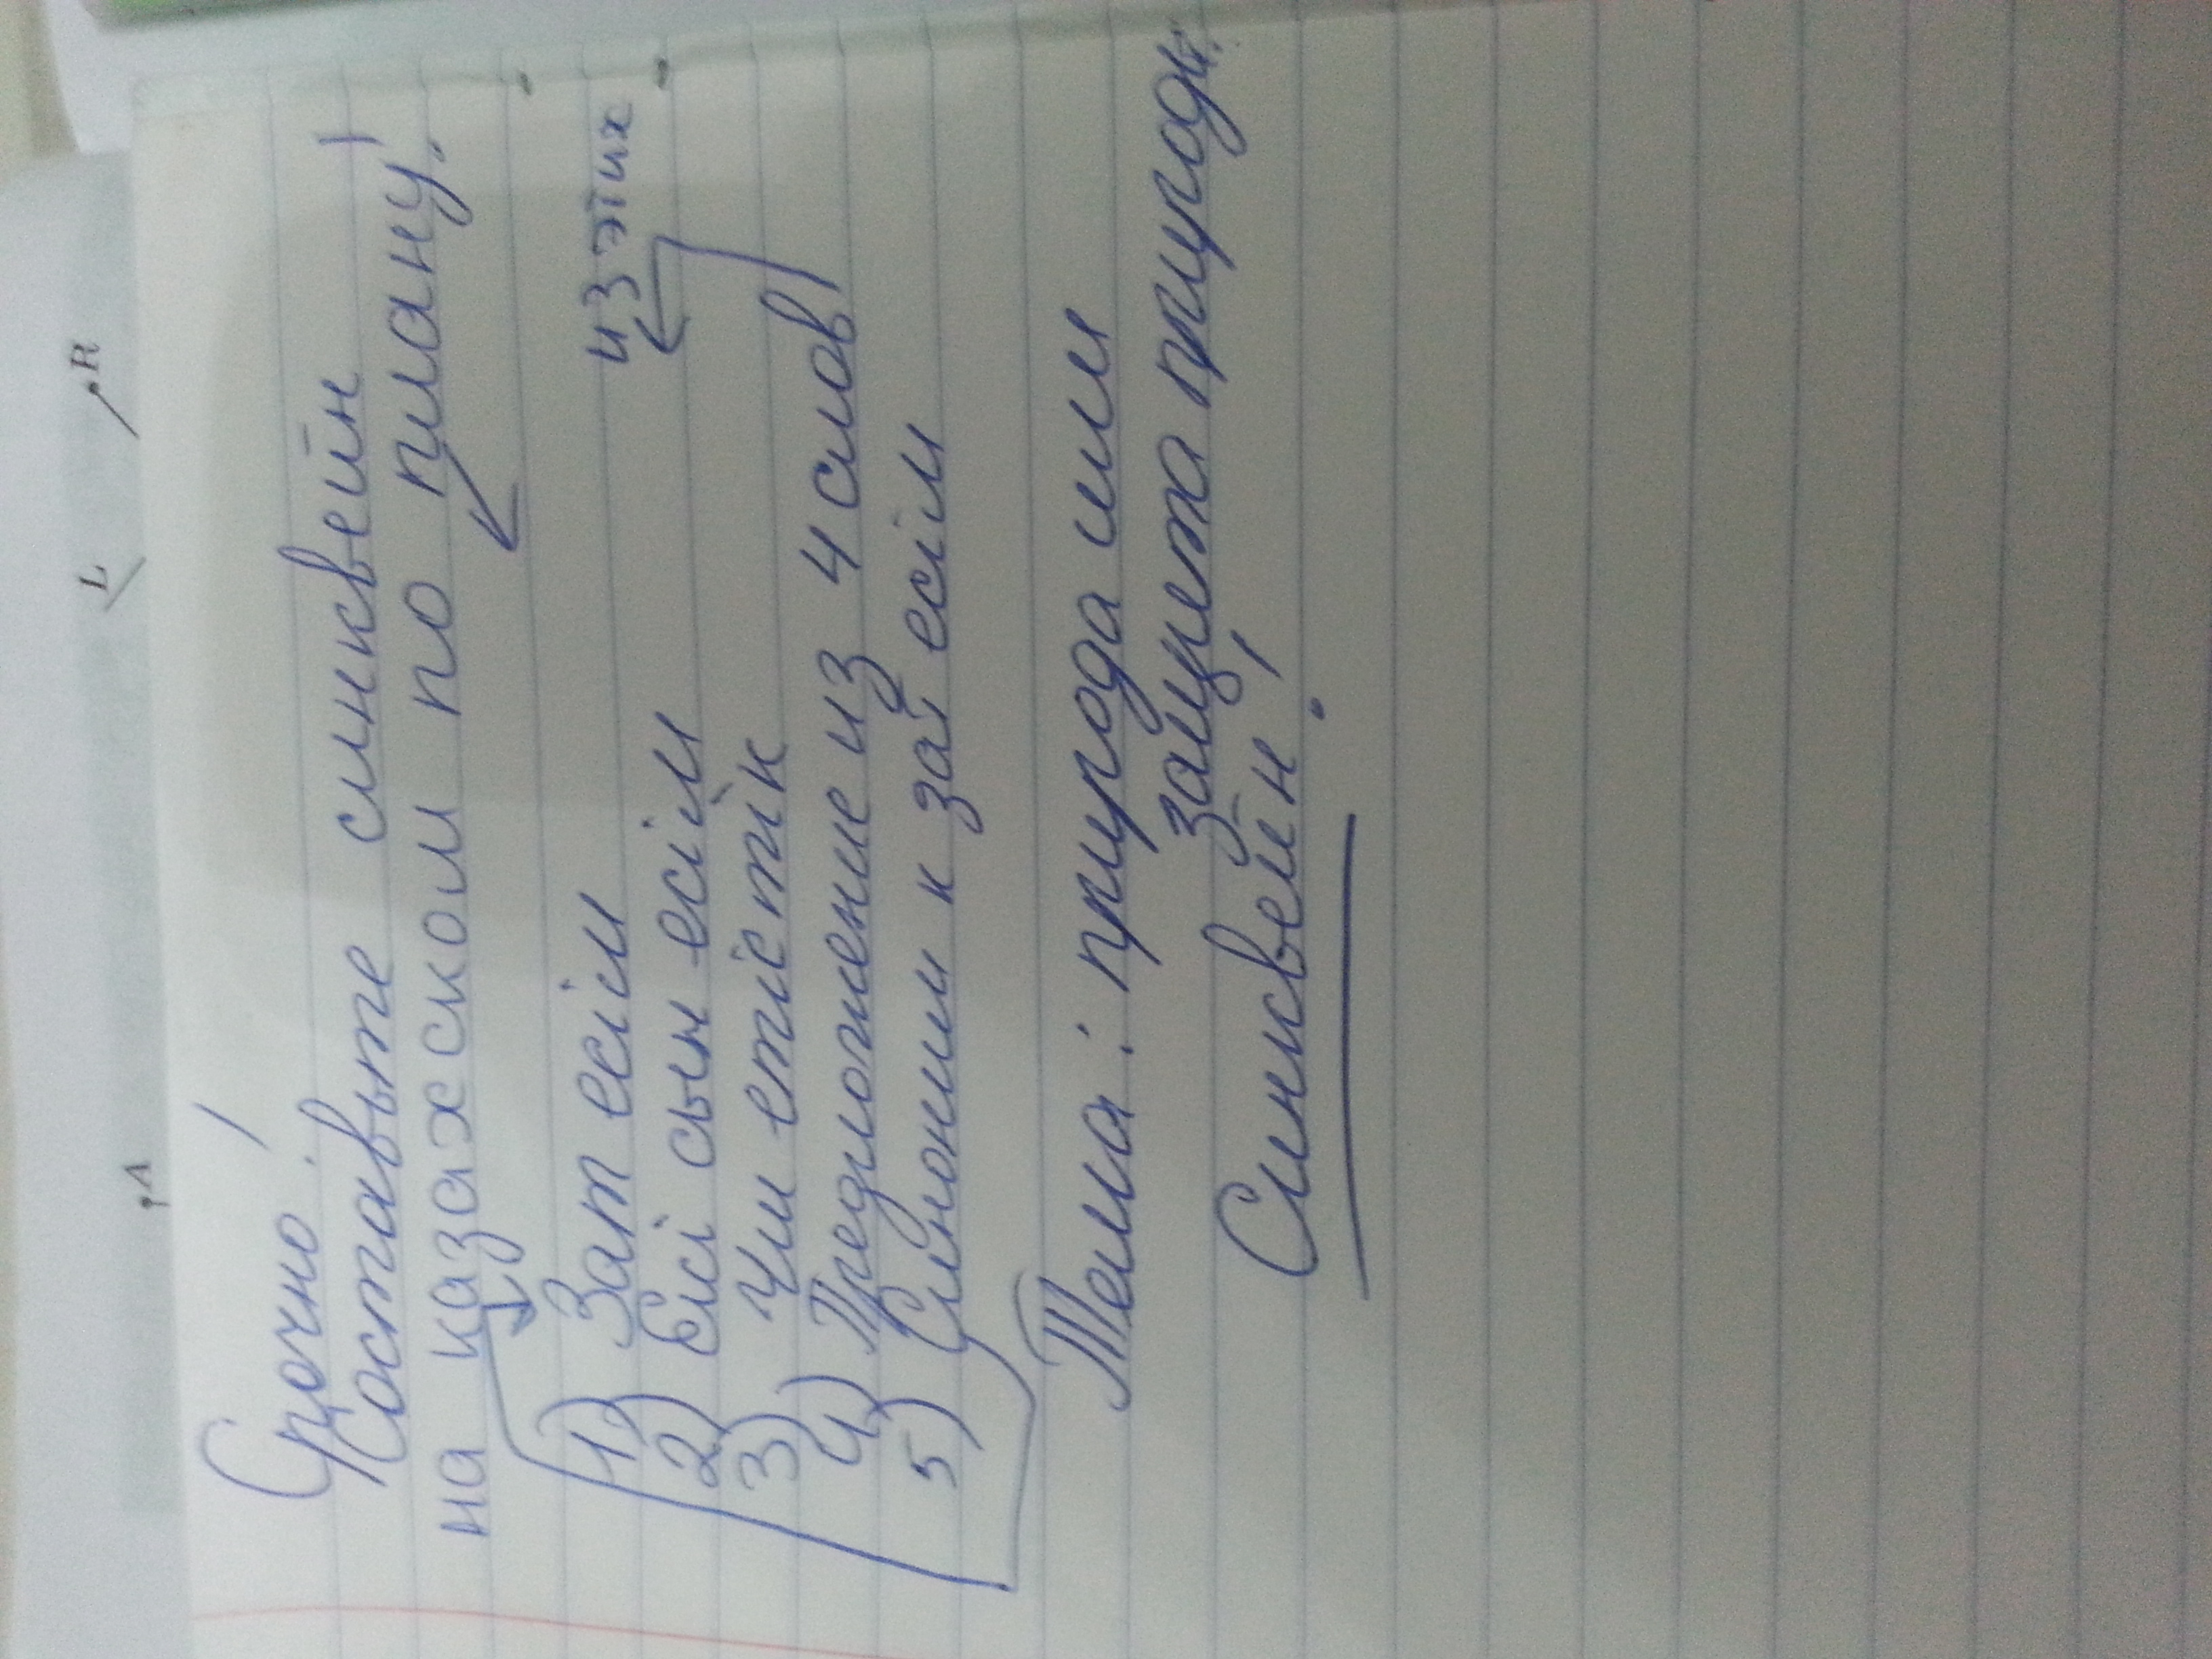 A L R
Срочно!
Составьте синквейн
на казахском по плану!
1) Зат есім
2) Екі сын есім
из этих
3) Үш етістік
4) Предложение из 4 слов
5) Синоним к зат есім
Тема: природа или
защита природы.
Синквейн!